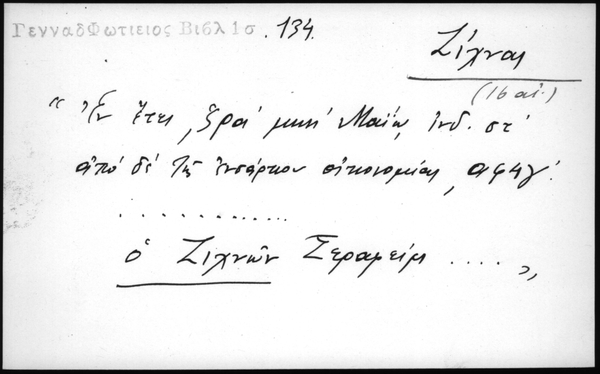 ΓενναδΦωτιειος Βιβλ 1σ . 134.
Ζίχναι
(16 αἰ.)
"Ἐν ἔτει ͵ζρα´ μηνὶ Μαίῳ ἰνδ. στ´
ἀπὸ δὲ τῆς ἐνσάρκου οἰκονομίας ͵αφηγ´.
. . . . . . . . . . . . .
ὁ Ζιχνῶν Σεραφείμ .... "